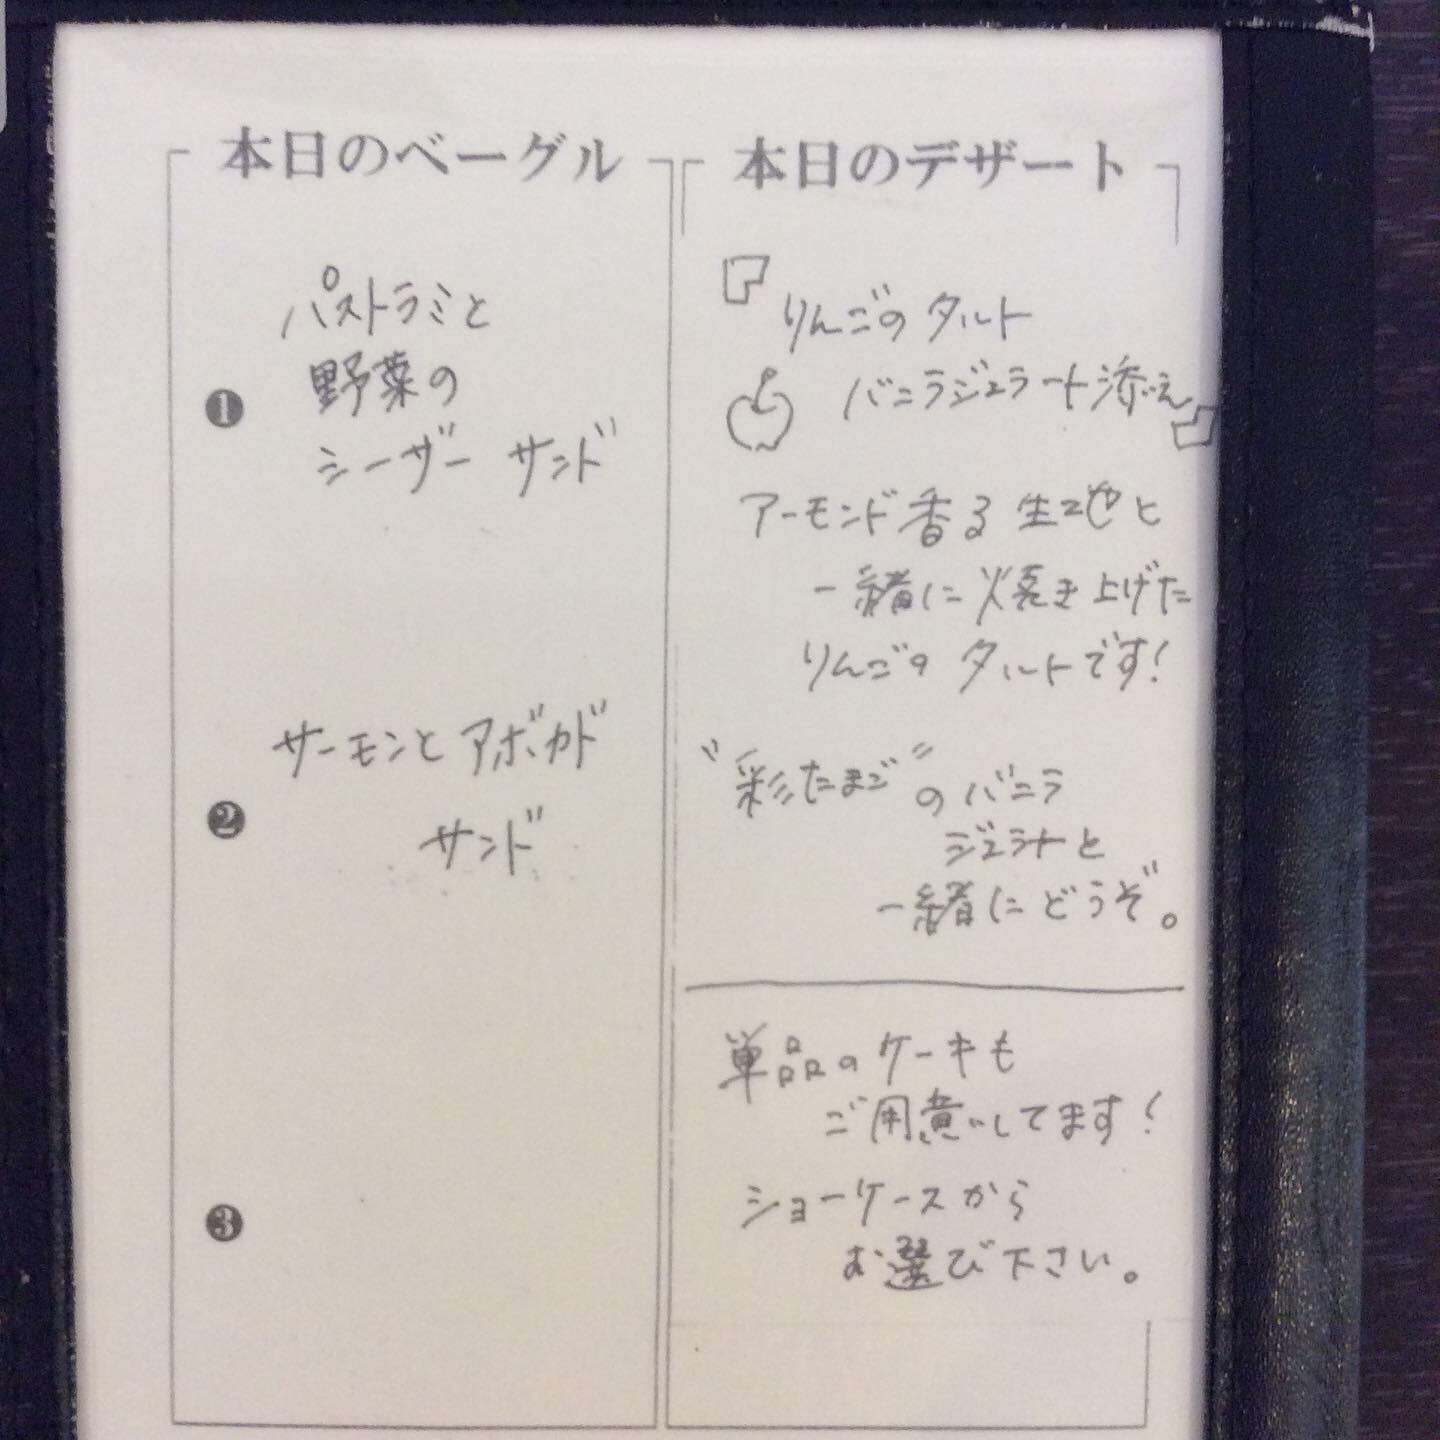 本日のベーグル
❶
パストラミと
野菜の
シーザー サンド
❷
サーモンと アボカド
サンド
❸
本日のデザート
『りんごのタルト
バニラジェラート添え』
アーモンド香る生地と
一緒に焼き上げた
りんごのタルトです!
"彩たまご"のバニラ
ジェラートと
一緒にどうぞ。
単品のケーキも
ご用意してます!
ショーケースから
お選び下さい。